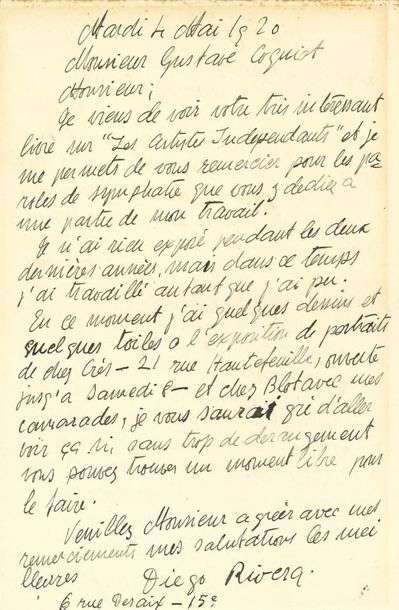 Mardi 4 Mai 1920
Monsieur Gustave Coquiot
Monsieur;
Je viens de voir votre très intéressant
livre sur "Les Artistes Indépendants" et je
me permets de vous remercier pour les pa-
roles de symphatie que vous y dediez a
une partie de mon travail.
Je n'ai rien exposé pendant les deux
dernières années, mais dans ce temps
j'ai travaillé autant que j'ai pu.
En ce moment j'ai quelques dessins et
quelques toiles a l'exposition de portraits
de chez Crés – 21 rue Hautefeuille, ouverte
jusq'a Samedi 8 – et chez Blot avec mes
camarades, je vous saurai gré d'aller
voir ça si, sans trop de derrangement
vous pouvez trouver un moment libre pour
le faire.
Veuillez Monsieur agréer avec mes
remerciements mes salutations les mei
lleures
Diego Rivera.
6 rue Desaix – 15e